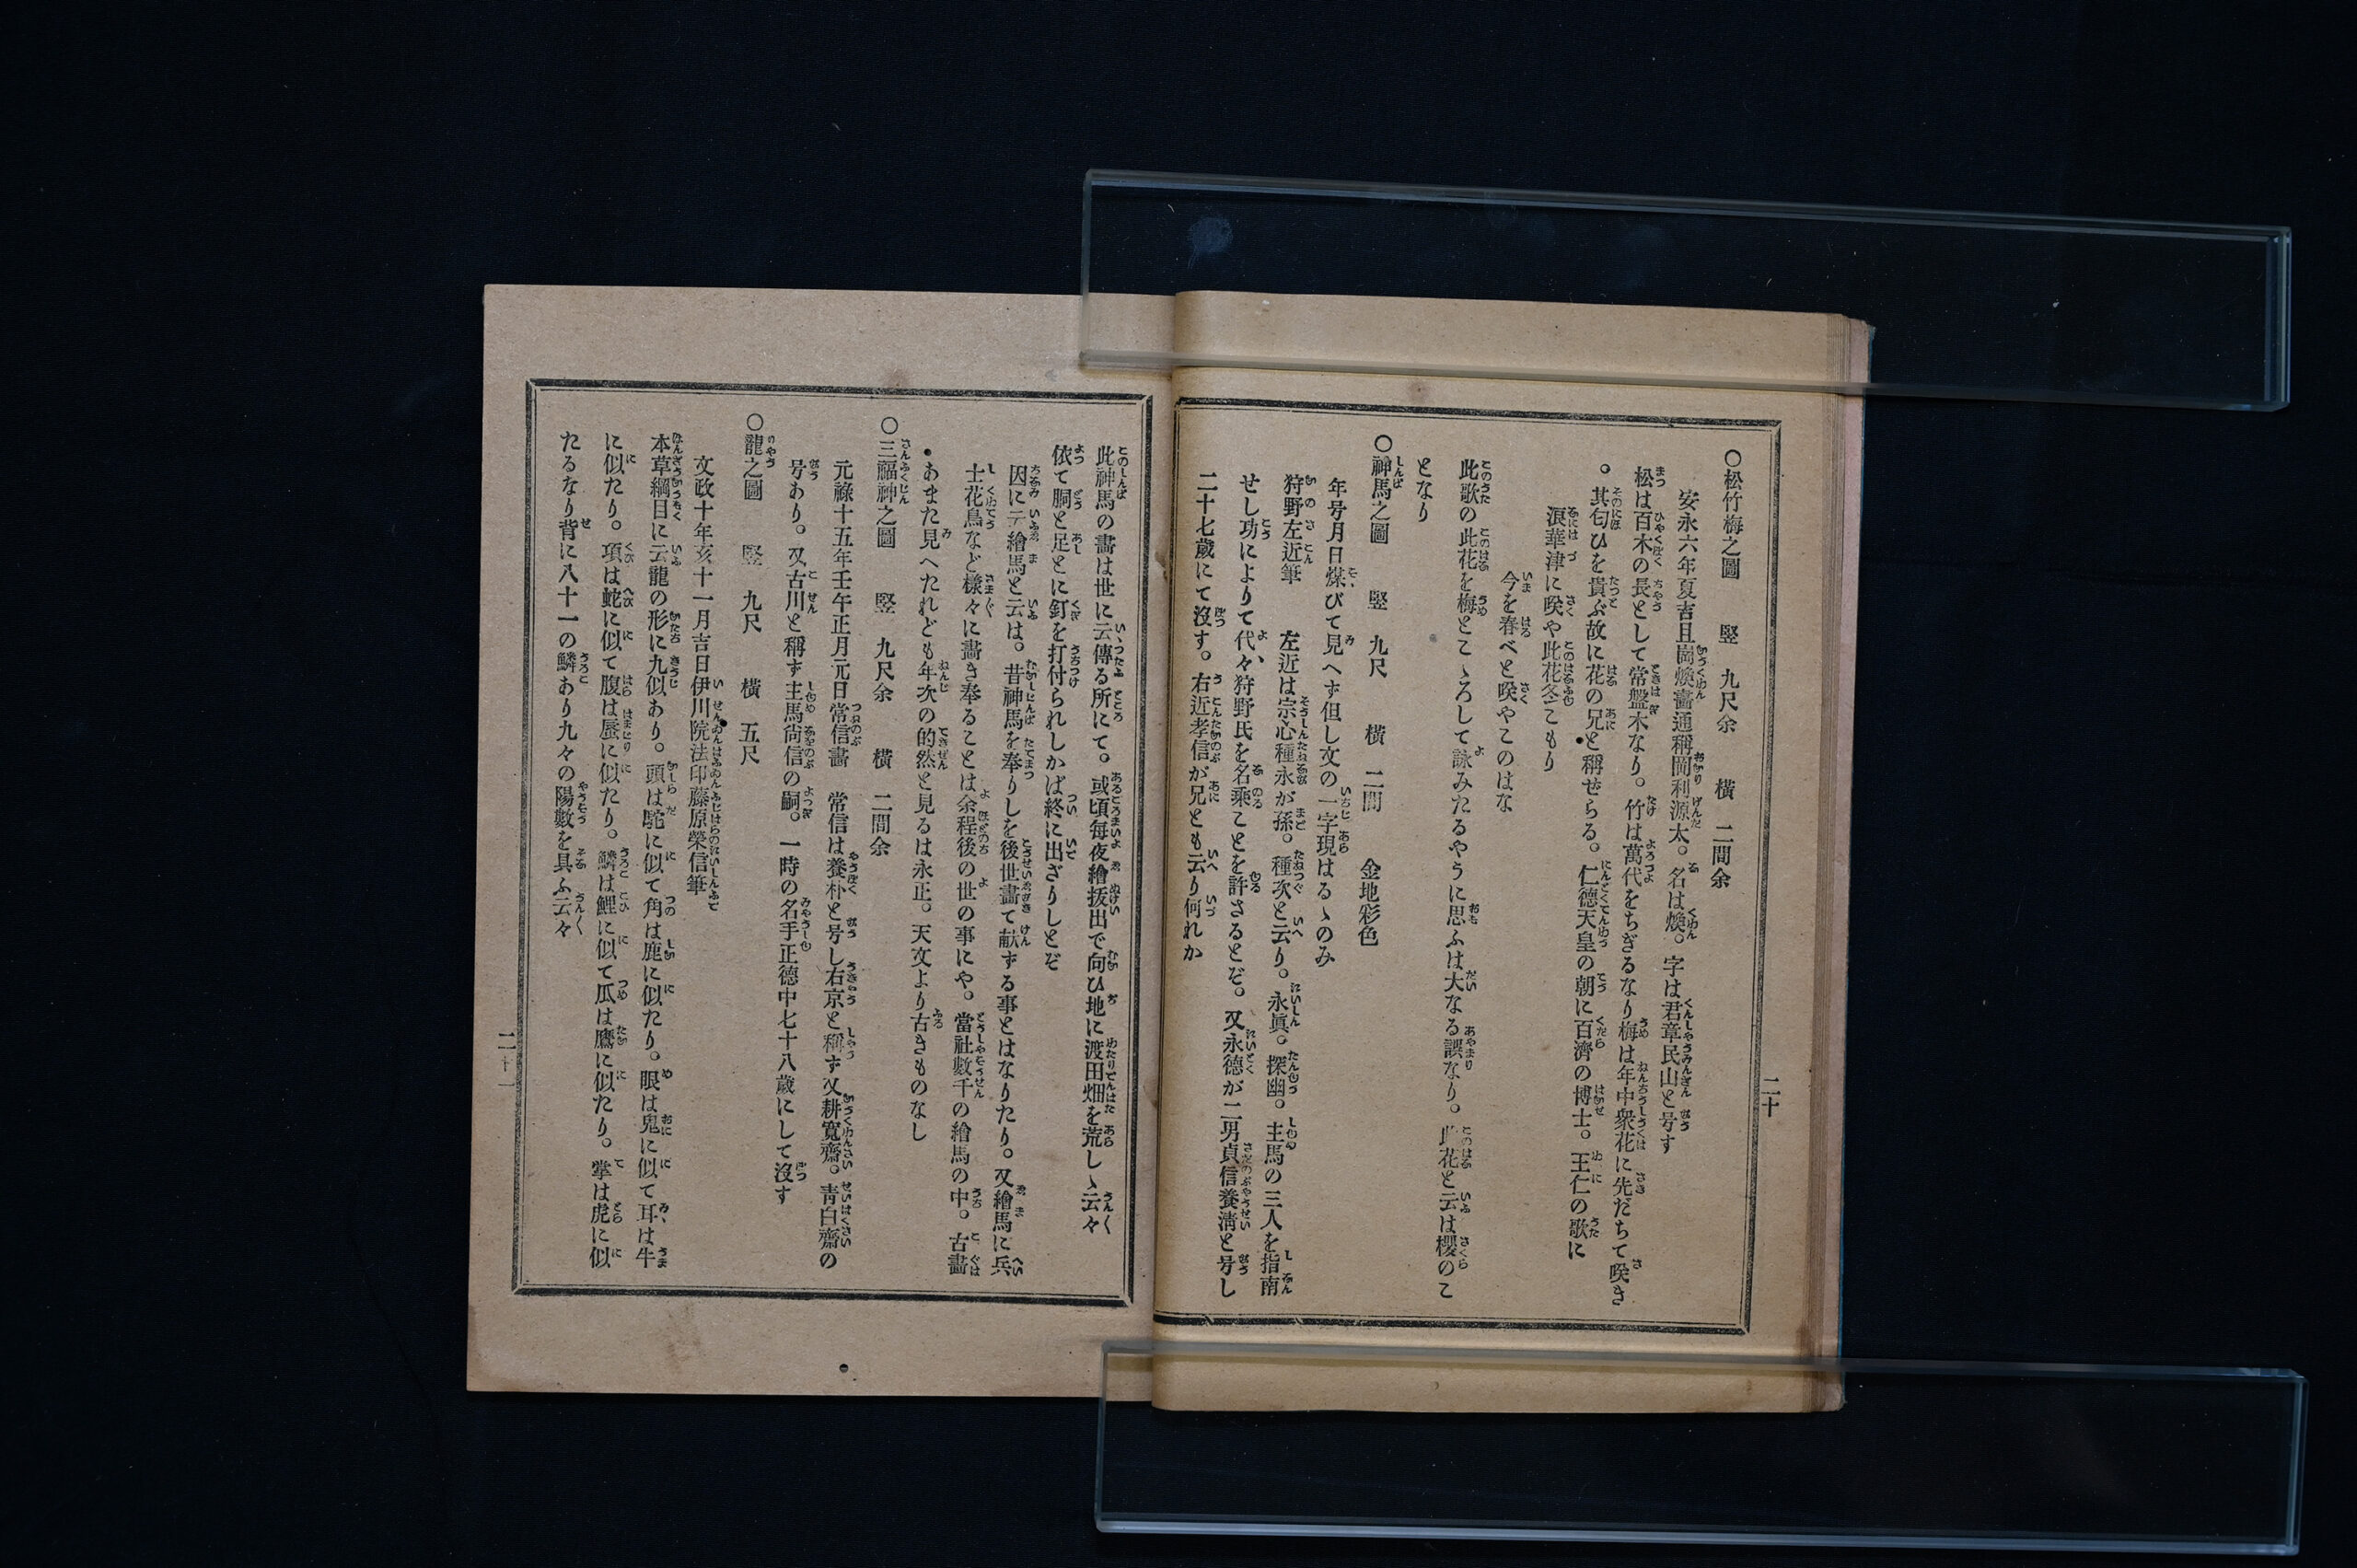 〇松竹梅之圖　　竪　九尺余　　橫　二間余
安永六年夏吉且崗煥畵通稱岡利源太。名は煥。字は君章民山と号す
松は百木の長として常盤木なり。竹は萬代をちぎるなり梅は年中衆花に先だちて咲き
。其匂ひを貴ぶ故に花の兄と稱せらる。仁德天皇の朝に百濟の博士。王仁の歌に
浪華津に咲や此花冬こもり
今を春べと咲やこのはな
此歌の此花を梅とこゝろして詠みたるやうに思ふは大なる誤なり。此花と云は櫻のこ
となり
〇神馬之圖　　竪　九尺　　橫　二間　　金地彩色
年号月日煤びて見へず但し文の一字現はるゝのみ
狩野左近筆　　左近は宗心種永が孫。種次と云り。永眞。探幽。主馬の三人を指南
せし功によりて代々狩野氏を名乘ことを許さるとぞ。又永德が二男貞信養淸と号し
二十七歲にて沒す。右近孝信が兄とも云り何れか
二十
此神馬の畵は世に云傳る所にて。或頃每夜繪拔出で向ひ地に渡田畑を荒しゝ云々
依て胴と足とに釘を打付られしかば終に出ざりしとぞ
因に云繪馬と云は。昔神馬を奉りしを後世畵て献ずる事とはなりたり。又繪馬に兵
士花鳥など樣々に畵き奉ることは余程後の世の事にや。當社數千の繪馬の中。古畵
あまた見へたれども年次の的然と見るは永正。天文より古きものなし
〇三福神之圖　　竪　九尺余　　橫　二間余
元祿十五年壬午正月元日常信畵　常信は養朴と号し右京と稱す又耕寬齋。靑白齋の
号あり。又古川と稱ず主馬尙信の嗣。一時の名手正德中七十八歲にして沒す
〇龍之圖　　竪　九尺　　橫　五尺
文政十年亥十一月吉日伊川院法印藤原榮信筆
本草綱目に云龍の形に九似あり。頭は駝に似て角は鹿に似たり。眼は鬼に似て耳は牛
に似たり。項は蛇に似て腹は蜃に似たり。鱗は鯉に似て瓜は鷹に似たり。掌は虎に似
たるなり背に八十一の鱗あり九々の陽數を具ふ云々
二十一